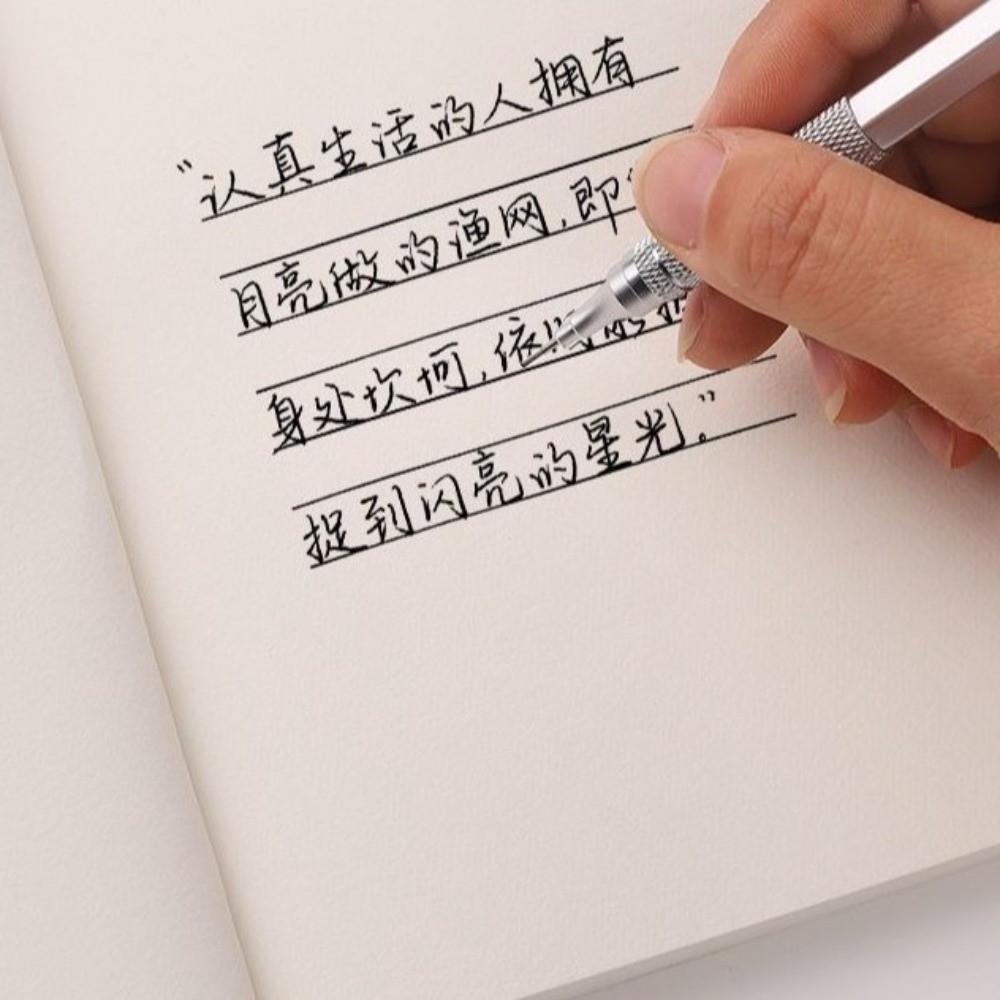 “认真生活的人拥有
月亮做的渔网，即
身处坎坷，依
捉到闪亮的星光。”